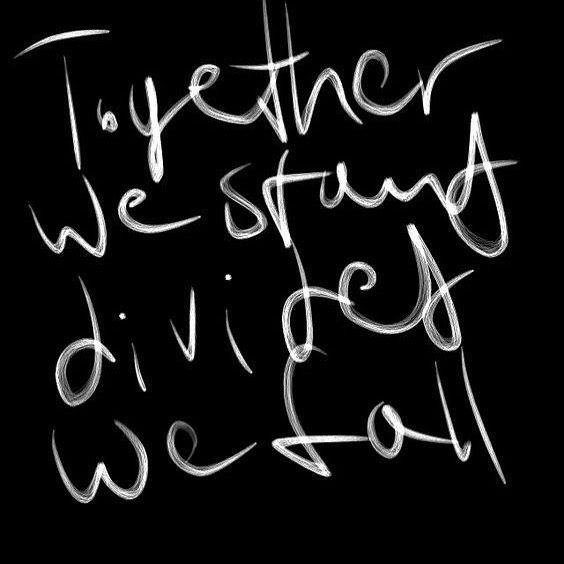 Together
we stand
divided
we fall